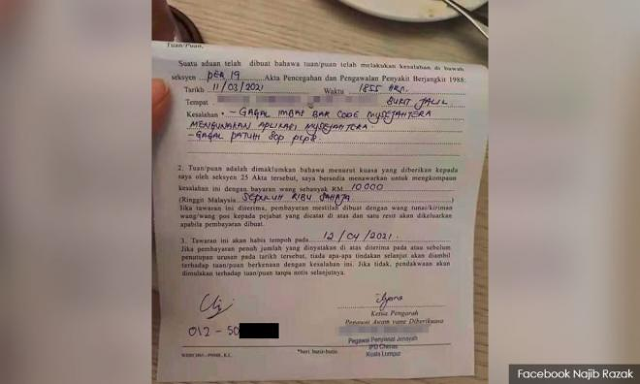 Tuan/Puan,
Suatu aduan telah dibuat bahawa tuan/puan telah melakukan kesalahan di bawah
seksyen PER 19 Akta Pencegahan dan Pengawalan Penyakit Berjangkit 1988:
Tarikh 11/03/2021 Waktu 1855 HRS.
Tempat BUKIT JALIL
Kesalahan - GAGAL IMBAS BAR CODE MYSEJAHTERA
MENGUNAKAN APLIKASI MYSEJAHTERA.
- GAGAL PATUHI SOP PKPB
2. Tuan/puan adalah dimaklumkan bahawa menurut kuasa yang diberikan kepada
saya oleh seksyen 25 Akta tersebut, saya bersedia menawarkan untuk mengkompaun
kesalahan ini dengan bayaran wang sebanyak RM 10,000
(Ringgit Malaysia SEPULUH RIBU SAHAJA )
Jika tawaran ini diterima, pembayaran mestilah dibuat dengan wang tunai/kiriman
wang/wang pos kepada pejabat yang dicatat di atas dan satu resit akan dikeluarkan
apabila pembayaran dibuat.
3. Tawaran ini akan habis tempoh pada 12/04/2021.
Jika pembayaran penuh jumlah yang dinyatakan di atas diterima pada atau sebelum
penutupan urusan pada tarikh tersebut, tiada apa-apa tindakan selanjut akan diambil
terhadap tuan/puan berkenaan dengan kesalahan ini. Jika tidak, pendakwaan akan
dimulakan terhadap tuan/puan tanpa notis selanjutnya.
012-50
Ketua Pengarah
Pegawai Penyiasat Jenayah
IPD Cheras
Kuala Lumpur
Facebook Najib Razak